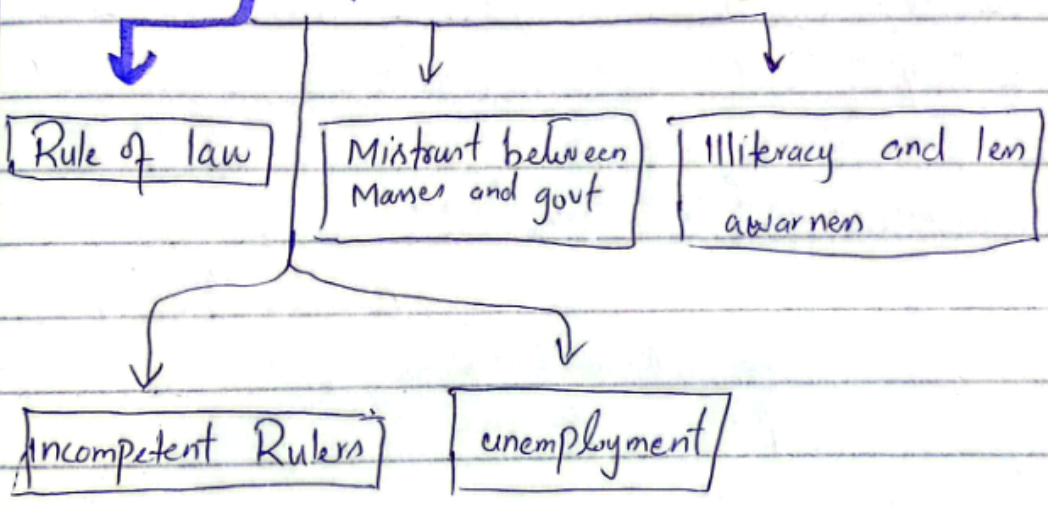 Rule of law
Mistrust between
Masses and govt
Illiteracy and less
awarness
incompetent Rulers
unemployment